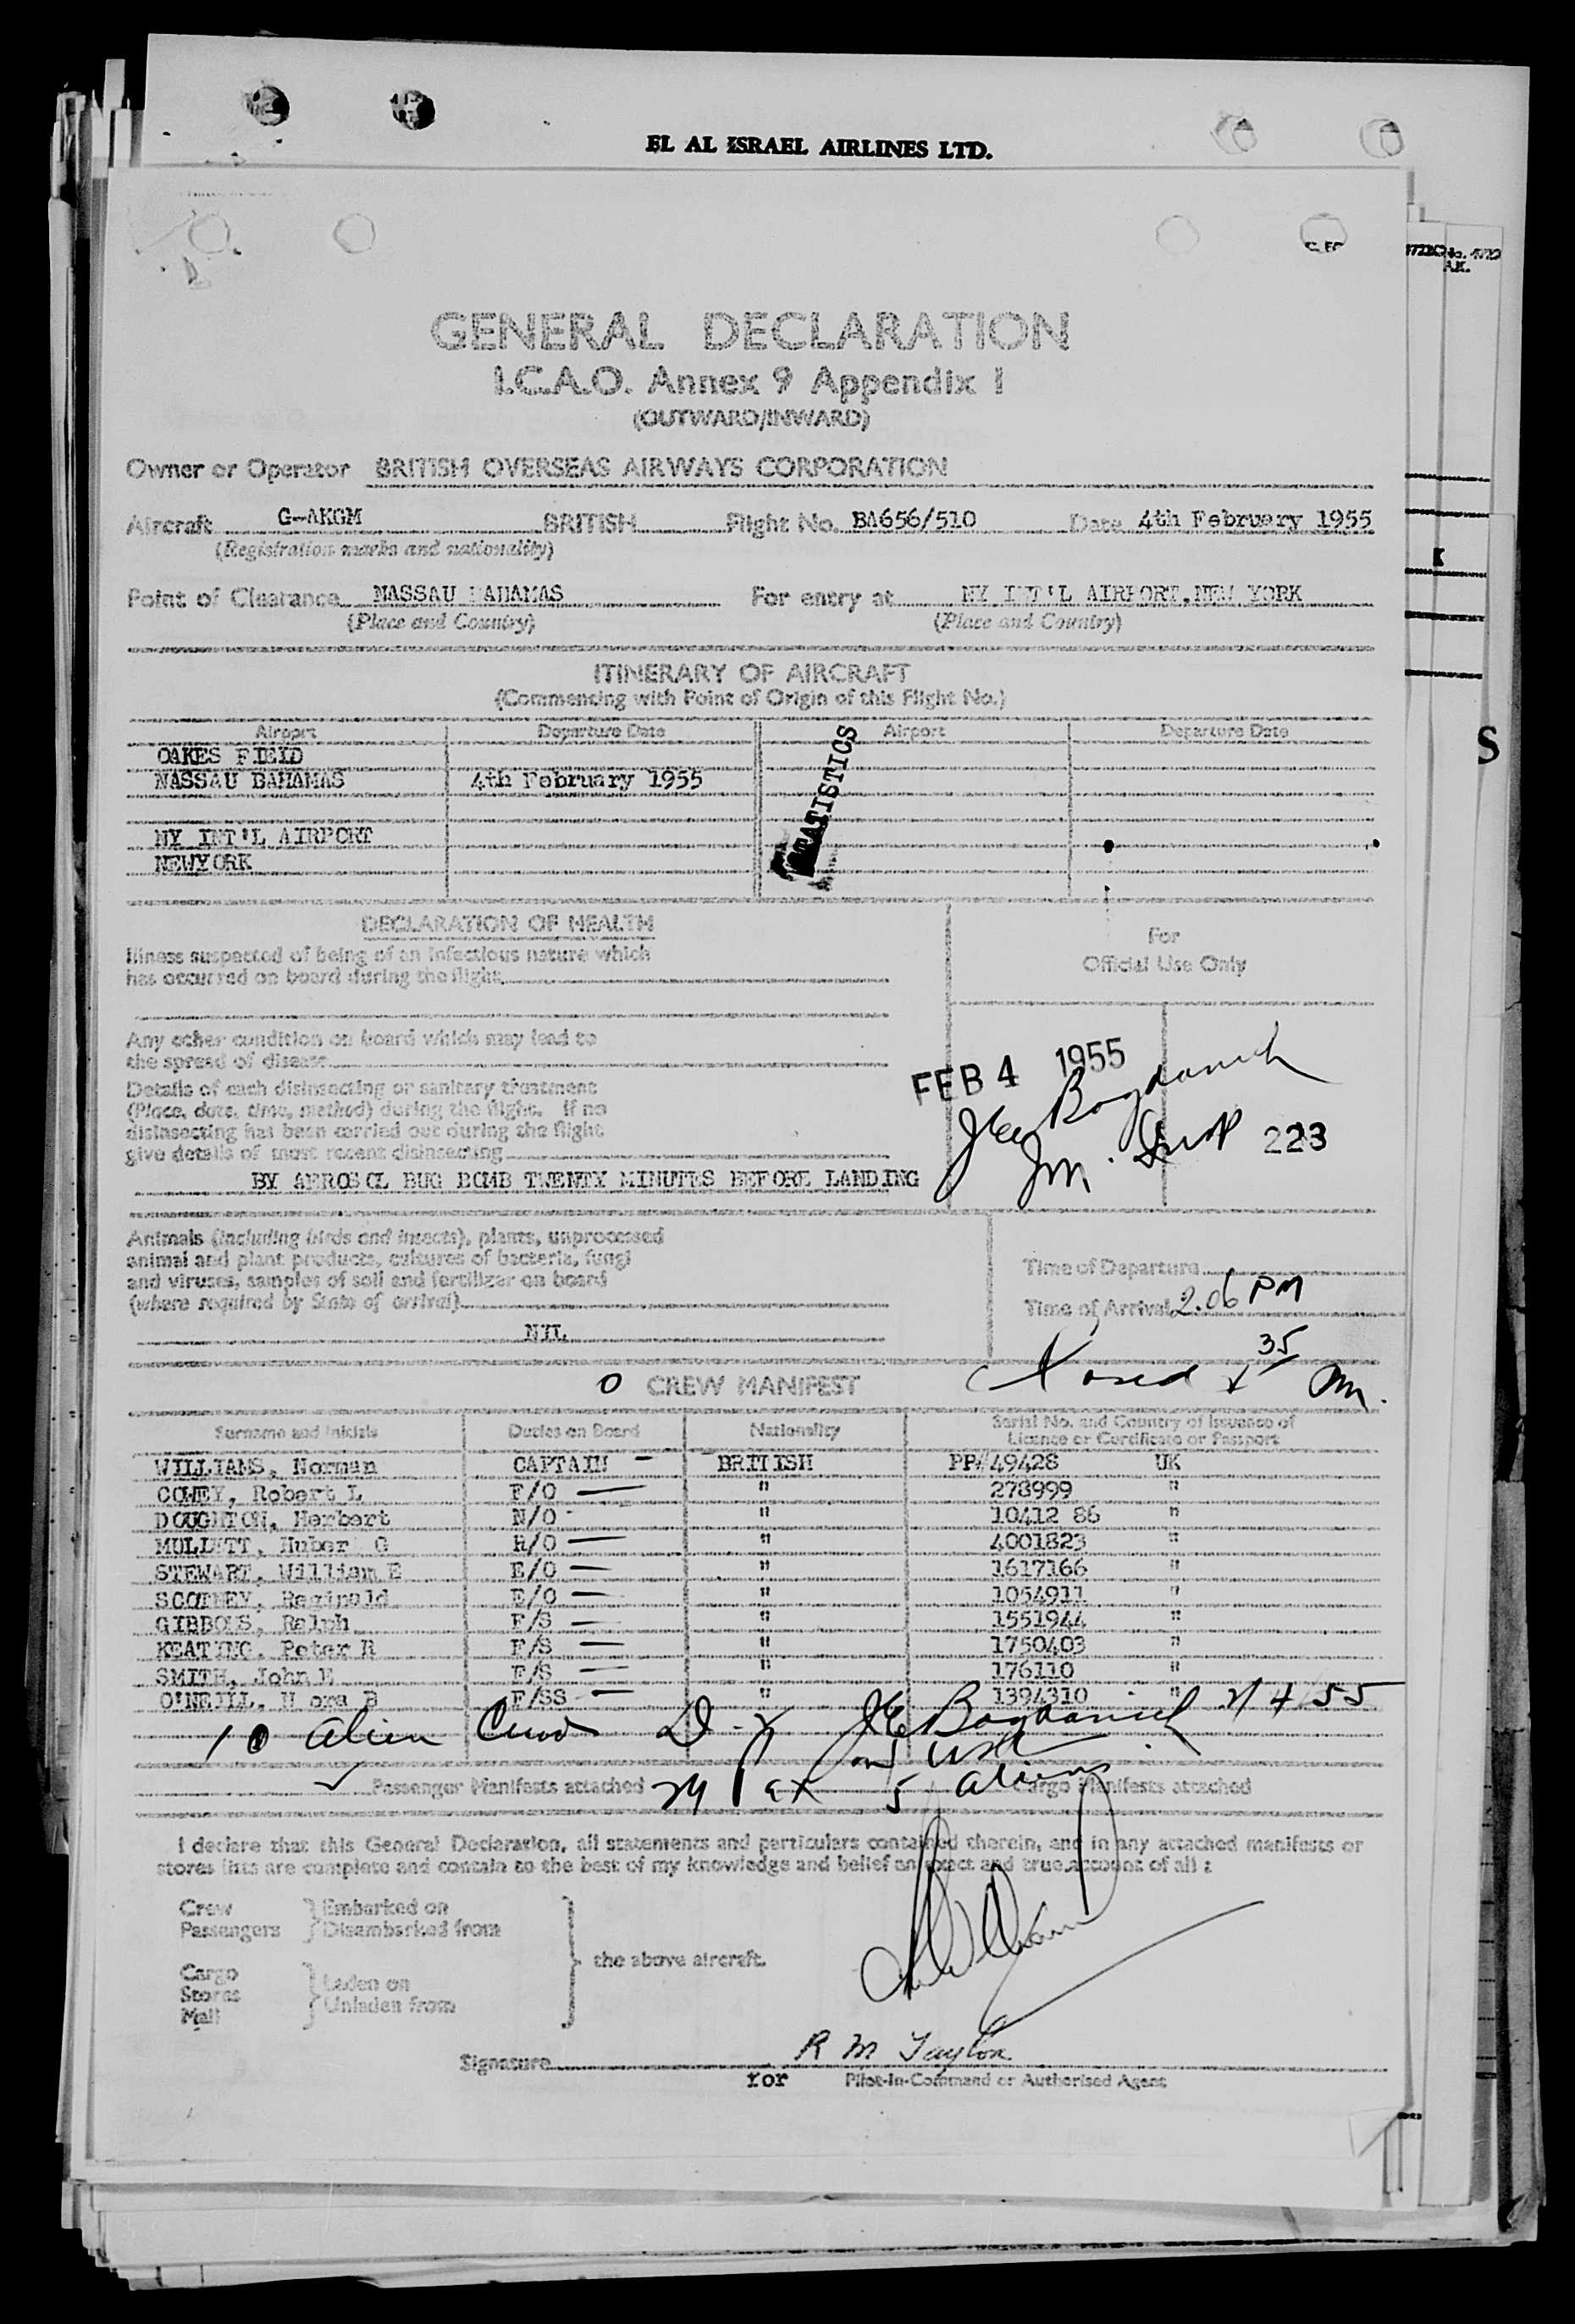 EL AL ISRAEL AIRLINES LTD.
GENERAL DECLARATION
I.C.A.O. Annex 9 Appendix I
(OUTWARD/INWARD)
Owner or Operator BRITISH OVERSEAS AIRWAYS CORPORATION
Aircraft G-AKGM BRITISH Flight No. BA656/510 Date 4th February 1955
(Registration marks and nationality)
Point of Clearance NASSAU BAHAMAS For entry at NY INT'L AIRPORT, NEW YORK
(Place and Country) (Place and Country)
ITINERARY OF AIRCRAFT
(Commencing with Point of Origin of this Flight No.)
Airport Departure Date Airport Departure Date
OAKES FIELD
NASSAU BAHAMAS 4th February 1955
STATISTICS
NY INT'L AIRPORT
NEWYORK
DECLARATION OF HEALTH
For
Official Use Only
Illness suspected of being of an infectious nature which
has occurred on board during the flight
Any other condition on board which may lead to
the spread of disease
Details of each disinsecting or sanitary treatment
(Place, date, time, method) during the flight. If no
disinsecting has been carried out during the flight
give details of most recent disinsecting
BY AEROSOL BUG BOMB TWENTY MINUTES BEFORE LANDING
FEB 4 1955
Bogdanich
Im. Insp 223
Animals (including birds and insects), plants, unprocessed
animal and plant products, cultures of bacteria, fungi
and viruses, samples of soil and fertilizer on board
(where required by State of arrival)
NIL
Time of Departure
Time of Arrival 2.06 PM
35
CREW MANIFEST
Surname and Initials Duties on Board Nationality Serial No. and Country of Issuance of
Licence or Certificate or Passport
WILLIAMS, Norman CAPTAIN BRITISH PP#49428 UK
COWEY, Robert L F/O " 278999 "
DOUGHTON, Herbert N/O " 10412 86 "
MULLETT, Huber G R/O " 4001823 "
STEWART, William E E/O " 1617166 "
SCOTNEY, Reginald E/O " 1054911 "
GIBBONS, Ralph F/S " 1551944 "
KEATING, Peter R F/S " 1750403 "
SMITH, John E F/S " 176110 "
O'NEILL, N ora B F/SS " 1394310 " 2/4/55
10 alien Crew Bogdanich
Passenger Manifests attached 24 5 aliens Cargo Manifests attached
I declare that this General Declaration, all statements and particulars contained therein, and in any attached manifests or
stores lists are complete and contain to the best of my knowledge and belief an exact and true account of all :
Crew Embarked on
Passengers Disembarked from
the above aircraft.
Cargo
Stores Laden on
Mail Unladen from
Signature R M Taylor
for Pilot-in-Command or Authorised Agent